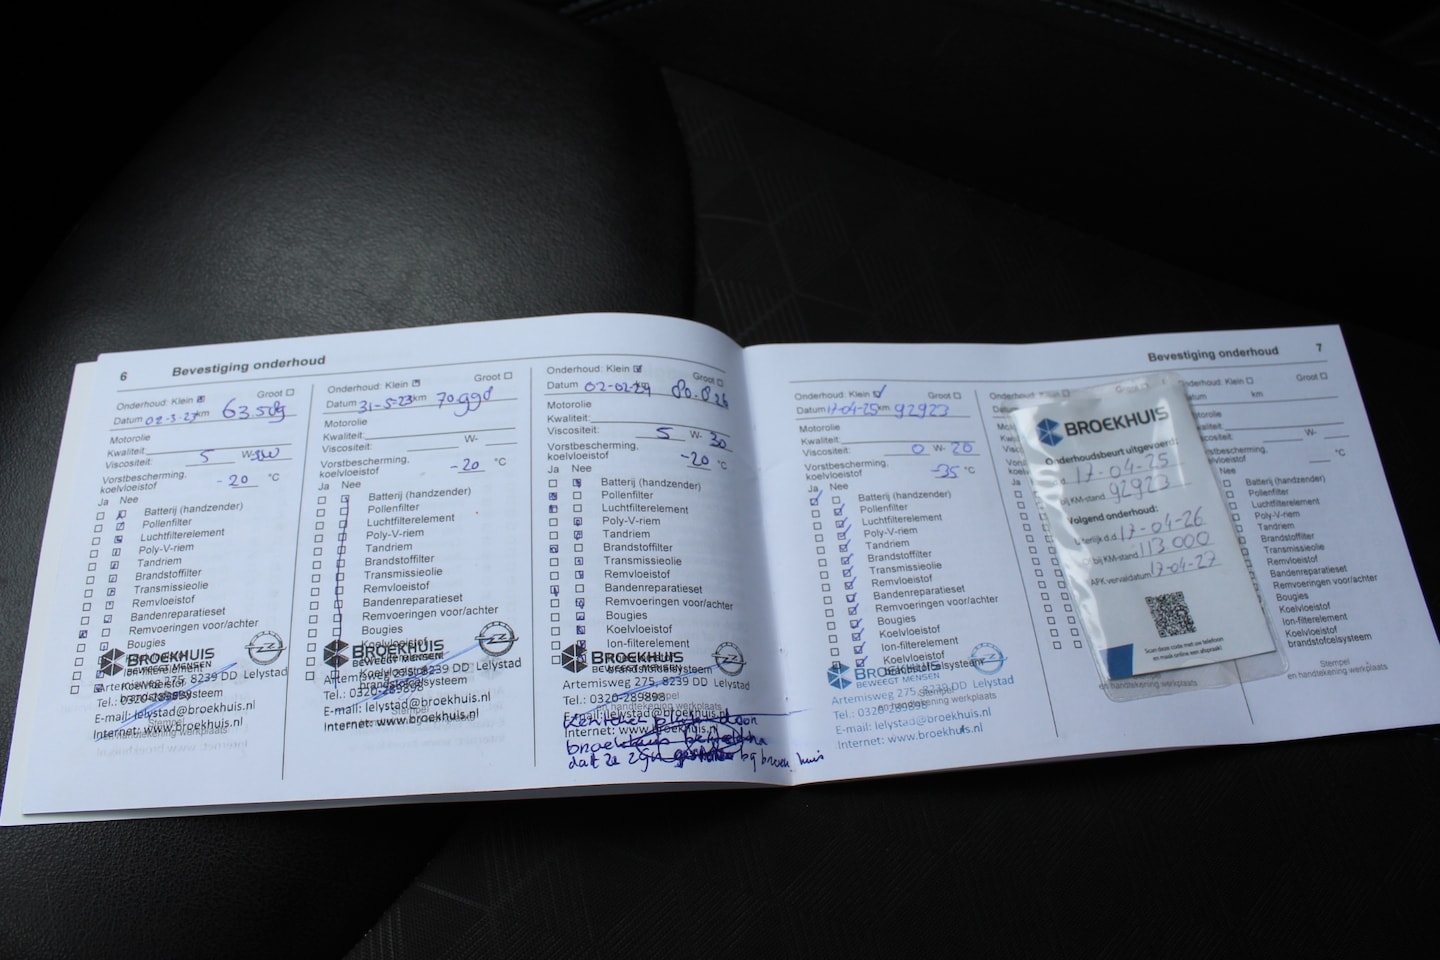 6 Bevestiging onderhoud
Onderhoud: Klein Groot
Datum 02-3-23 km 63.508
Motorolie
Kwaliteit:
Viscositeit: 5 W- 30
Vorstbescherming,
koelvloeistof - 20 °C
Ja Nee
Batterij (handzender)
Pollenfilter
Luchtfilterelement
Poly-V-riem
Tandriem
Brandstoffilter
Transmissieolie
Remvloeistof
Bandenreparatieset
Remvoeringen voor/achter
Bougies
Koelvloeistof
Ion-filterelement
Koelvloeistof
brandstofcelsysteem
BROEKHUIS
BEWEEGT MENSEN
Artemisweg 275, 8239 DD Lelystad
Tel.: 0320-289898
E-mail: lelystad@broekhuis.nl
Internet: www.broekhuis.nl
Stempel
en handtekening werkplaats
Onderhoud: Klein Groot
Datum 31-5-23 km 70.998
Motorolie
Kwaliteit:
Viscositeit: W-
Vorstbescherming,
koelvloeistof -20 °C
Ja Nee
Batterij (handzender)
Pollenfilter
Luchtfilterelement
Poly-V-riem
Tandriem
Brandstoffilter
Transmissieolie
Remvloeistof
Bandenreparatieset
Remvoeringen voor/achter
Bougies
Koelvloeistof
brandstofcelsysteem
BROEKHUIS
BEWEEGT MENSEN
Artemisweg 275, 8239 DD Lelystad
Tel.: 0320-289898
E-mail: lelystad@broekhuis.nl
Internet: www.broekhuis.nl
Stempel
en handtekening werkplaats
Onderhoud: Klein Groot
Datum km
Motorolie
Kwaliteit:
Viscositeit: 5 W- 30
Vorstbescherming,
koelvloeistof -20 °C
Ja Nee
Batterij (handzender)
Pollenfilter
Luchtfilterelement
Poly-V-riem
Tandriem
Brandstoffilter
Transmissieolie
Remvloeistof
Bandenreparatieset
Remvoeringen voor/achter
Bougies
Koelvloeistof
Ion-filterelement
brandstofcelsysteem
BROEKHUIS
BEWEEGT MENSEN
Artemisweg 275, 8239 DD Lelystad
Tel.: 0320-289898
Stempel
en handtekening werkplaats
E-mail: lelystad@broekhuis.nl
Internet: www.broekhuis.nl
door
bij
Bevestiging onderhoud 7
Onderhoud: Klein Groot
Datum 17-04-25 km 92923
Motorolie
Kwaliteit:
Viscositeit: 0 W- 20
Vorstbescherming,
koelvloeistof -35 °C
Ja Nee
Batterij (handzender)
Pollenfilter
Luchtfilterelement
Poly-V-riem
Tandriem
Brandstoffilter
Transmissieolie
Remvloeistof
Bandenreparatieset
Remvoeringen voor/achter
Bougies
Koelvloeistof
Ion-filterelement
Koelvloeistof
brandstofcelsysteem
BROEKHUIS
BEWEEGT MENSEN
Artemisweg 275, 8239 DD Lelystad
Tel.: 0320-289898
Stempel
en handtekening werkplaats
E-mail: lelystad@broekhuis.nl
Internet: www.broekhuis.nl
Groot
Ja
BROEKHUIS
Onderhoudsbeurt uitgevoerd:
d.d. 17-04-25
bij KM-stand 92923
Volgend onderhoud:
Uiterlijk d.d. 17-04-26
Of bij KM-stand 113 000
APK vervaldatum 17-04-27
Scan deze code met uw telefoon
en maak online een afspraak!
Stempel
en handtekening werkplaats
Onderhoud: Klein Groot
Datum km
Motorolie
W-
°C
Nee
Batterij (handzender)
Pollenfilter
Luchtfilterelement
Poly-V-riem
Tandriem
Brandstoffilter
Transmissieolie
Remvloeistof
Bandenreparatieset
Remvoeringen voor/achter
Bougies
Koelvloeistof
Ion-filterelement
Koelvloeistof
brandstofcelsysteem
Stempel
en handtekening werkplaats